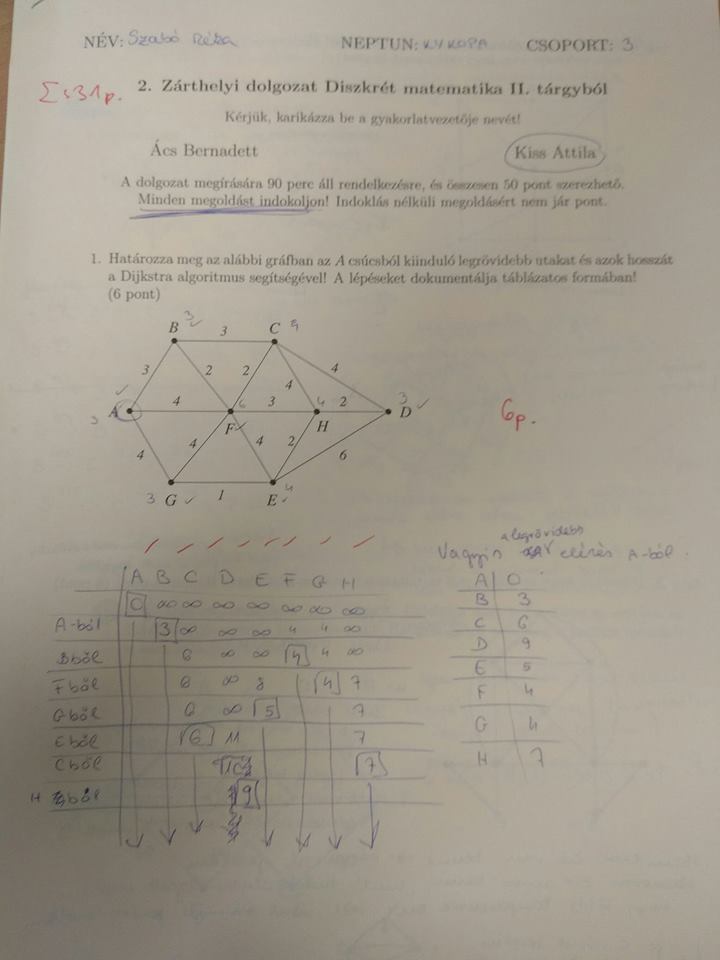 NÉV: Szabó Réka NEPTUN: KVKOPA CSOPORT: 3
Σ: 31p.
2. Zárthelyi dolgozat Diszkrét matematika II. tárgyból
Kérjük, karikázza be a gyakorlatvezetője nevét!
Ács Bernadett Kiss Attila
A dolgozat megírására 90 perc áll rendelkezésre, és összesen 50 pont szerezhető.
Minden megoldást indokoljon! Indoklás nélküli megoldásért nem jár pont.
1. Határozza meg az alábbi gráfban az A csúcsból kiinduló legrövidebb utakat és azok hosszát
a Dijkstra algoritmus segítségével! A lépéseket dokumentálja táblázatos formában!
(6 pont)
3
B 3 C 4
3 2 2 4 4
3 A 4 F 3 4 H 2 3 D
6p.
4 4 4 2 6
3 G 1 E 4
a legrövidebb
Vagyis elérés A-ból.
A B C D E F G H
0 ∞ ∞ ∞ ∞ ∞ ∞ ∞
A-ból 3 ∞ ∞ ∞ 4 4 ∞
Bből 6 ∞ ∞ 4 4 ∞
Fből 6 ∞ 8 4 7
Gből 6 ∞ 5 7
Eből 6 11 7
Cből 10 7
H ból 9
A 0
B 3
C 6
D 9
E 5
F 4
G 4
H 7